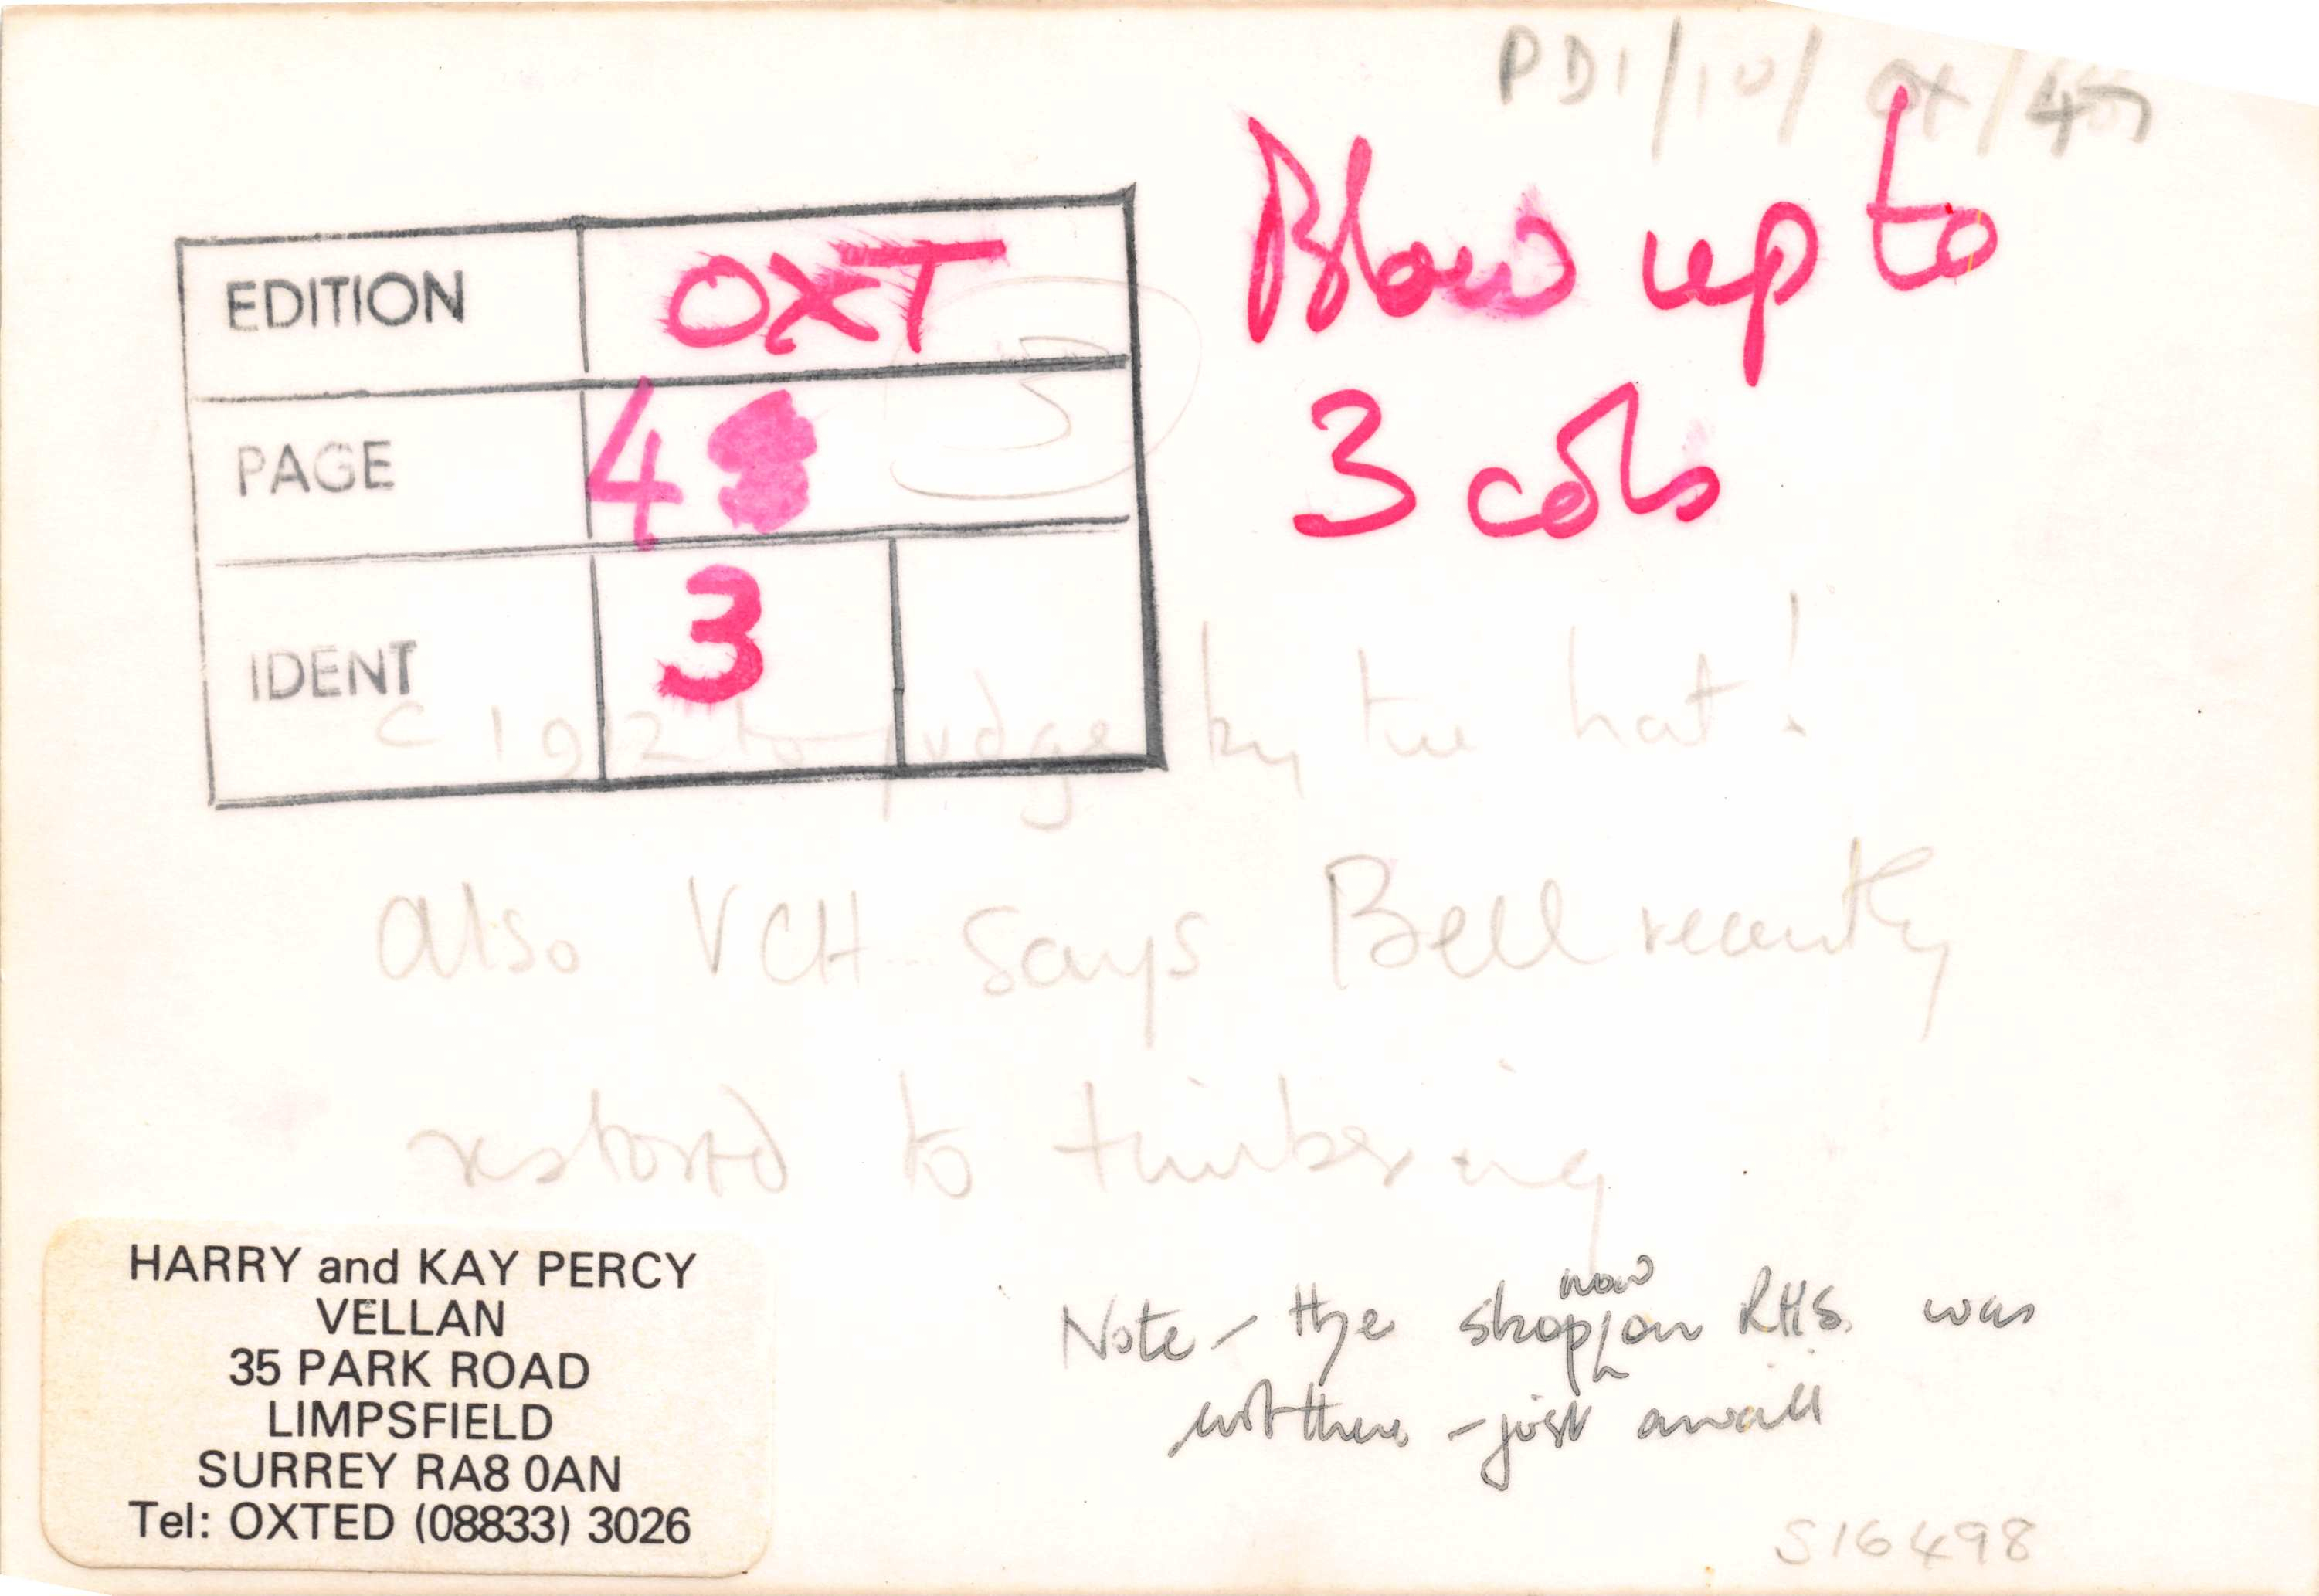 PD1/10/OX/45
Blow up to
3 cols
EDITION OXT
PAGE 4
3
IDENT 3
c 1912 to judge by the hat!
also VCH says Bell recently
restored to timbering
HARRY and KAY PERCY
VELLAN
35 PARK ROAD
LIMPSFIELD
SURREY RA8 0AN
Tel: OXTED (08833) 3026
Note - the shop now on RHS. was
not there - just a wall
S16498